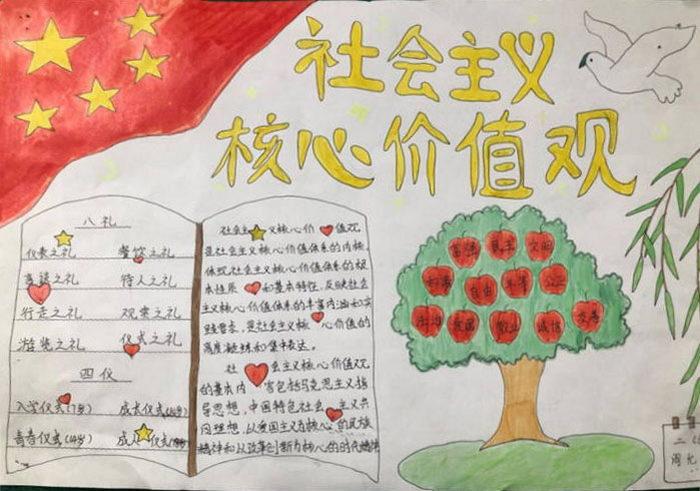 社会主义
核心价值观
八礼
仪表之礼 餐饮之礼
言谈之礼 待人之礼
行走之礼 观赏之礼
游览之礼 仪式之礼
四仪
入学仪式(7岁) 成长仪式
青春仪式(14岁) 成人仪式
社会主义核心价值观
是社会主义核心价值体系的内核,
体现社会主义核心价值体系的根
本性质和基本特征,反映社会
主义核心价值体系的丰富内涵和实
践要求,是社会主义核心价值的
高度凝练和集中表达。
社会主义核心价值观
的基本内容包括马克思主义指
导思想,中国特色社会主义共
同理想,以爱国主义为核心的民族
精神和以改革创新为核心的时代精神
富强 民主 文明
和谐 自由 平等 公正
法治 爱国 敬业 诚信 友善